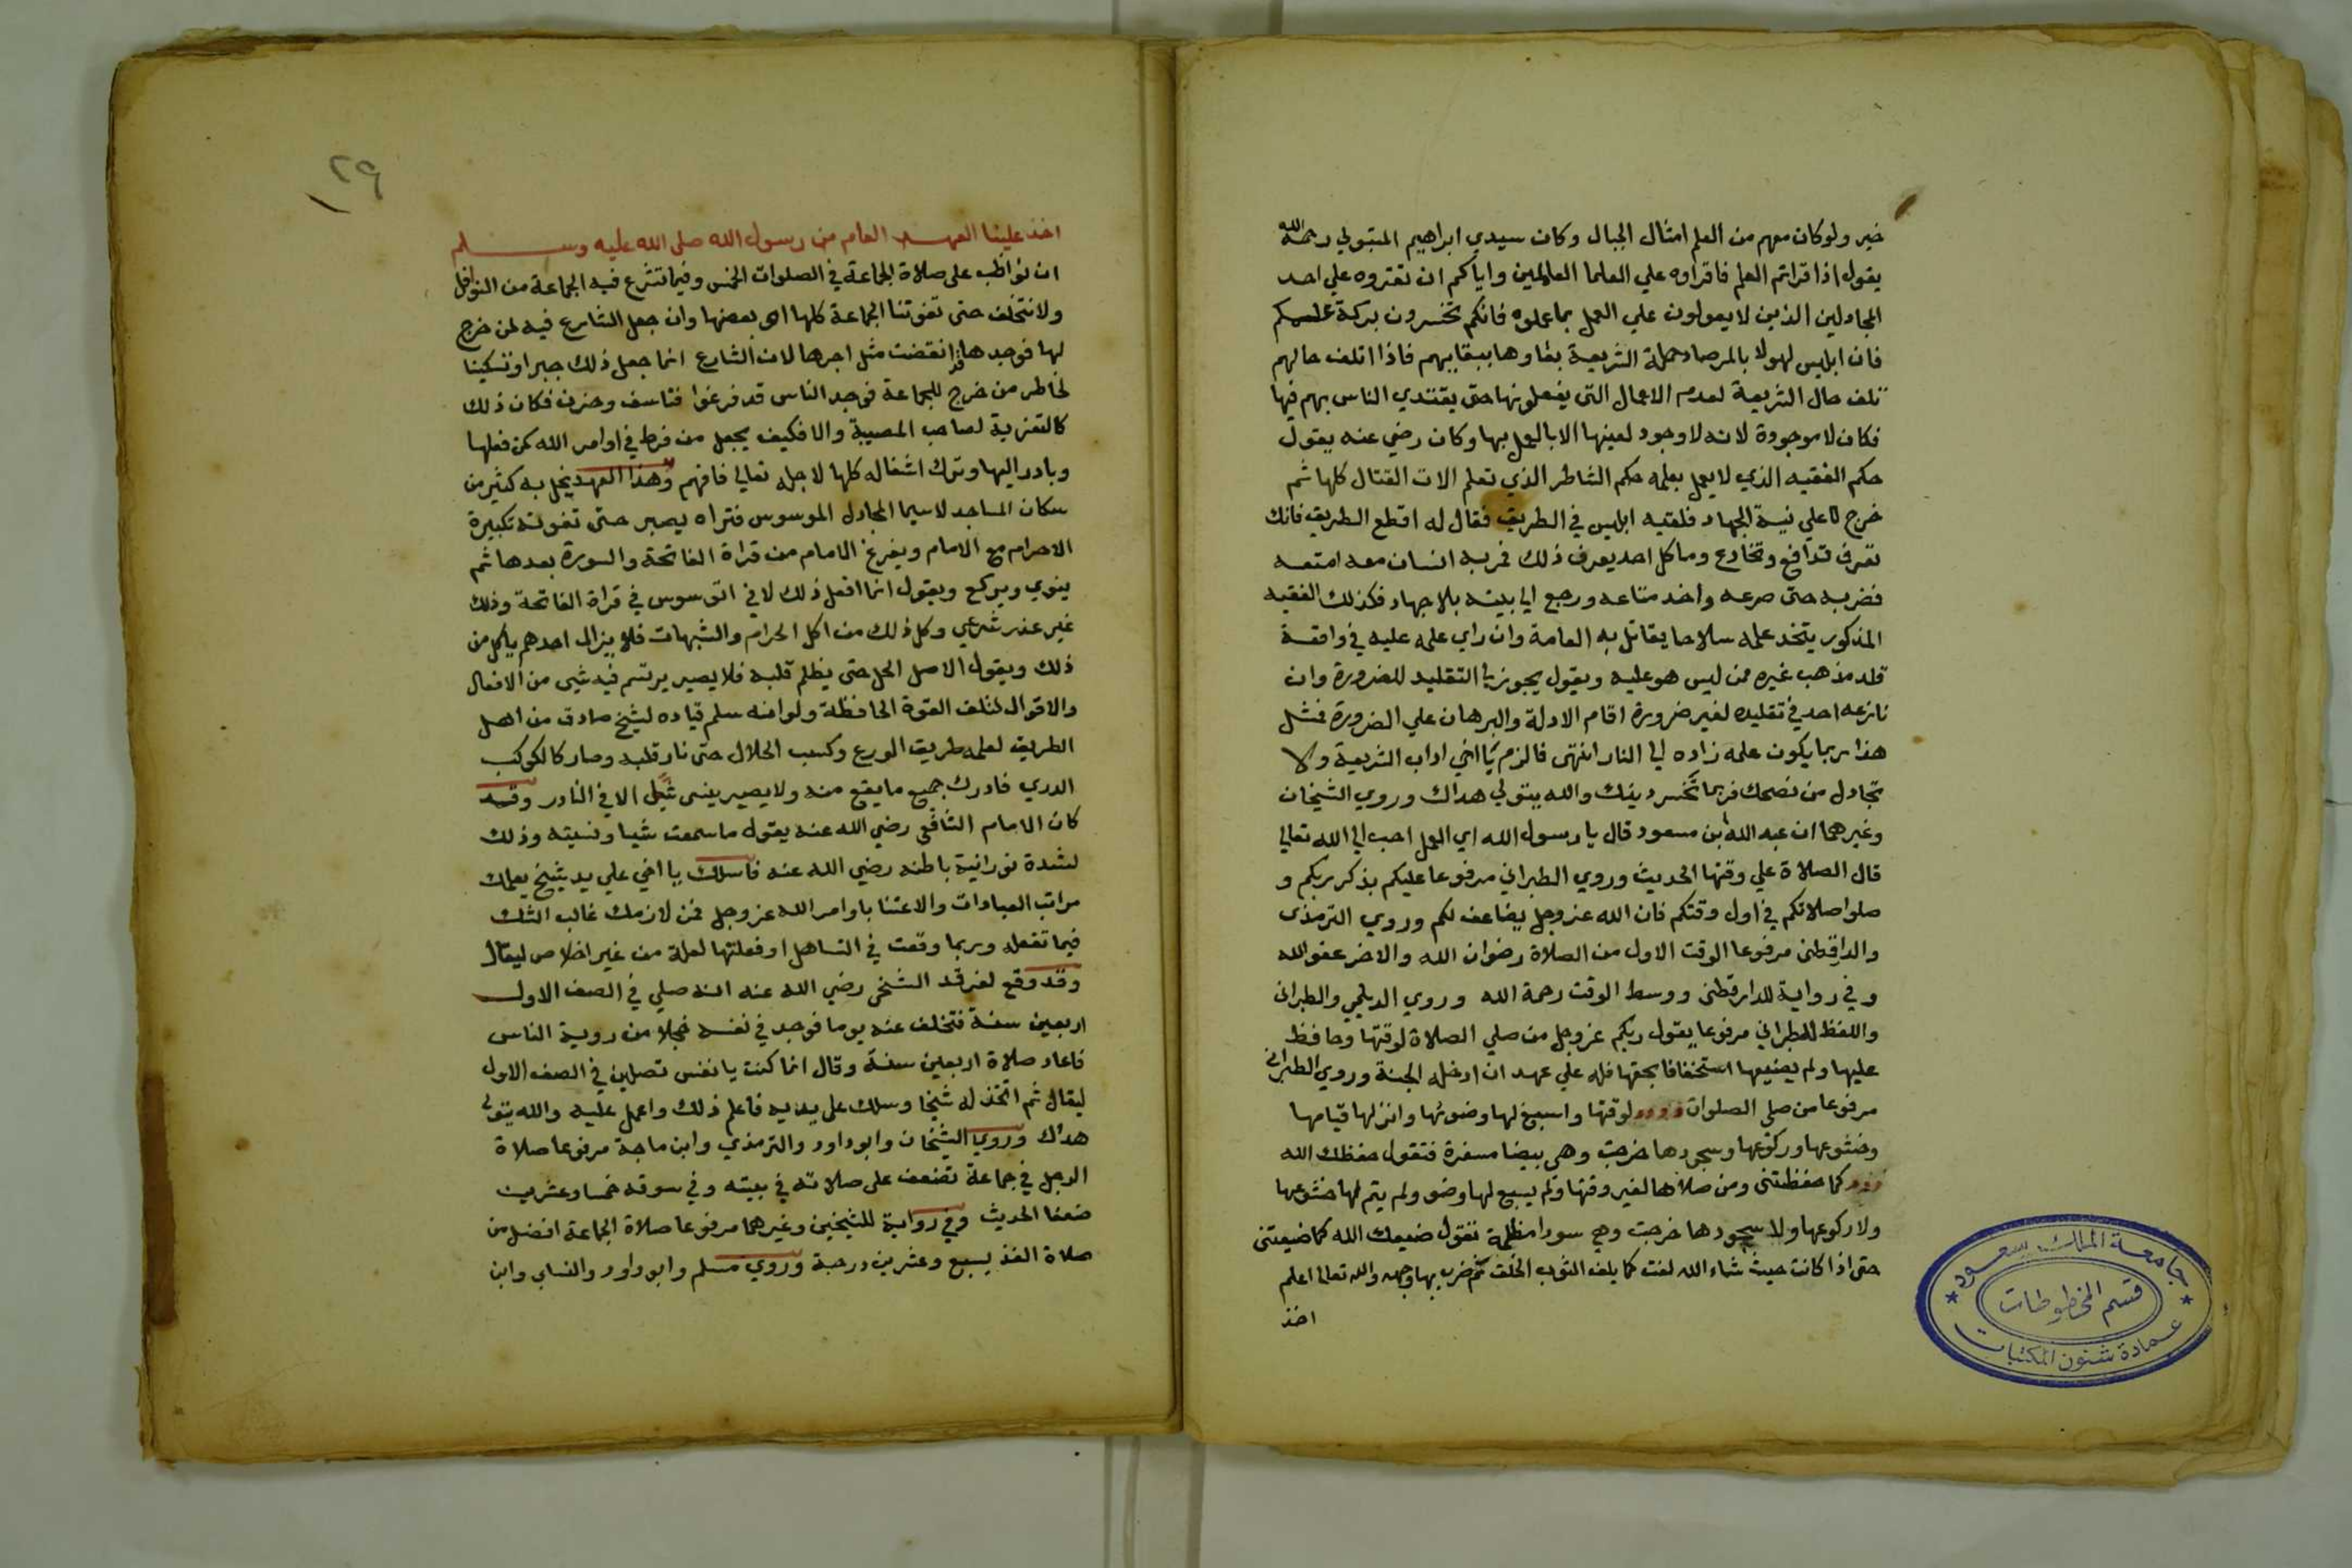 خير ولو كان معهم من العلم امثال الجبال وكان سيدي ابراهيم المتبولي رحمه الله
يقول اذا قراتم العلم فاقراوه علي العلما العاملين واياكم ان تقتروه علي احد
المجادلين الذين لا يعولون علي العمل بما علموه فانكم تخسرون بركة علمكم
فان ابليس لهولا بالمرصاد حملة الشريعة بقاوها ببقايهم فاذا اتلف حالهم
تلف حال الشريعة لعدم الاعمال التى يفعلونها حتى يقتدي الناس بهم فيها
فكان لا موجودة لانه لا وجود لعينها الا بالعمل بها وكان رضي عنه يقول
حكم الفقيه الذي لا يعمل بعلمه حكم الشاطر الذي تعلم الات القتال كلها ثم
خرج لا علي نية الجهاد فلقيه ابليس في الطريق فقال له اقطع الطريق فانك
تعرف تدافع وتخادع وما كل احد يعرف ذلك فمر به انسان معه امتعه
فضربه حتى صرعه واخذ متاعه ورجع الي بيته بلا جهاد فكذلك الفقيه
المذكور يتخذ علمه سلاحا يقاتل به العامة وان راي علمه عليه في واقعة
قلد مذهب غيره ممن ليس هو عليه ويقول يجوز لي التقليد للضرورة وان
نازعه احد في تقليده لغير ضرورة اقام الادلة والبرهان علي الضرورة فمثل
هذا ربما يكون علمه زاده الي النار انتهى فالزم يا اخي اداب الشريعة ولا
تجادل من نصحك فربما تخسر دينك والله يتولي هداك وروي الشيخان
وغيرهما ان عبد الله بن مسعود قال يا رسول الله اي العمل احب الي الله تعالي
قال الصلاة علي وقتها الحديث وروي الطبراني مرفوعا عليكم بذكر ربكم و
صلوا صلاتكم في اول وقتكم فان الله عز وجل يضاعف لكم وروي الترمذى
والدارقطنى مرفوعا الوقت الاول من الصلاة رضوان الله والاخر عفو الله
وفي رواية للدارقطنى ووسط الوقت رحمة الله وروي الديلمي والطبرانى
واللفظ للطبراني مرفوعا يقول ربكم عز وجل من صلي الصلاة لوقتها وحافظ
عليها ولم يضيعها استخفافا بحقها فله علي عهد ان ادخله الجنة وروي الطبرانى
مرفوعا من صلى الصلوات لوقتها واسبغ لها وضوئها واتم لها قيامها
وخشوعها وركوعها وسجودها خرجت وهى بيضا مسفرة فتقول حفظك الله
كما حفظتنى ومن صلاها لغير وقتها ولم يسبع لها وضو ولم يتم لها خشوعها
ولا ركوعها ولا سجودها خرجت وهي سودا مظلمة تقول ضيعك الله كما ضيعتنى
حتى اذا كانت حيث شاء الله لفت كما يلف الثوب الخلق ثم ضرب بها وجهه والله تعالى اعلم
اخذ
جامعة الملك سعود
قسم المخطوطات
عمادة شئون المكتبات
٢٩
اخذ علينا العهد العام من رسول الله صلى الله عليه وسلم
ان نواظب على صلاة الجماعة في الصلوات الخمس وفيما تشرع فيه الجماعة من النوافل
ولا نتخلف حتى تفوتنا الجماعة كلها او بعضها وان جعل الشارع فيه لمن خرج
لها فوجدها قد انقضت مثل اجرها لان الشارع انما جعل ذلك جبرا وتسكينا
لخاطر من خرج للجماعة فوجد الناس قد فرغوا فتاسف وحزن فكان ذلك
كالتعزية لصاحب المصيبة والا فكيف يجعل من فرط في اوامر الله كمن فعلها
وبادر اليها وترك اشغاله كلها لاجله تعالي فافهم وهذا العهد يخل به كثير من
سكان المساجد لا سيما المجادل الموسوس فتراه يصبر حتى تفوته تكبيرة
الاحرام مع الامام ويفرغ الامام من قراة الفاتحة والسورة بعدها ثم
ينوي ويركع ويقول انما افعل ذلك لاني اتوسوس في قراة الفاتحة وذلك
غير عذر شرعي وكل ذلك من اكل الحرام والشبهات فلا يزال احدهم ياكل من
ذلك ويقول الاصل الحل حتى يظلم قلبه فلا يصير يرتسم فيه شيى من الافعال
والاقوال لتلف القوة الحافظة ولو انه سلم قياده لشيخ صادق من اهل
الطريق لعلمه طريق الورع وكسب الحلال حتى نار قلبه وصار كالكوكب
الدري فادرك جميع ما يقع منه ولا يصير ينسى شيا الا في النادر وقد
كان الامام الشافعي رضي الله عنه يقول ما سمعت شيا ونسيته وذلك
لشدة نورانية باطنه رضي الله عنه فاسلك يا اخي علي يد شيخ يعلمك
مراتب العبادات والاعتنا باوامر الله عز وجل فمن لازمك غالب الشك
فيما تفعله وربما وقعت في التساهل او فعلتها لعلة من غير اخلاص ليقال
وقد وقع لفرقد الشنخي رضي الله عنه انه صلي في الصف الاول
اربعين سنة فتخلف عنه يوما فوجد في نفسه خجلا من روية الناس
فاعاد صلاة اربعين سنة وقال انما كنت يا نفس تصلين في الصف الاول
ليقال ثم اتخذ له شيخا وسلك على يديه فاعلم ذلك واعمل عليه والله يتولى
هداك وروي الشيخان وابو داود والترمذي وابن ماجة مرفوعا صلاة
الرجل في جماعة تضعف على صلاته في بيته وفي سوقه خمسا وعشرين
ضعفا الحديث وفي رواية للشيخين وغيرهما مرفوعا صلاة الجماعة افضل من
صلاة الفذ بسبع وعشرين درجة وروي مسلم وابو داود والنساي وابن